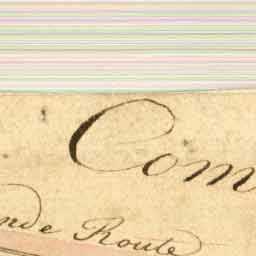 Com
nde Route